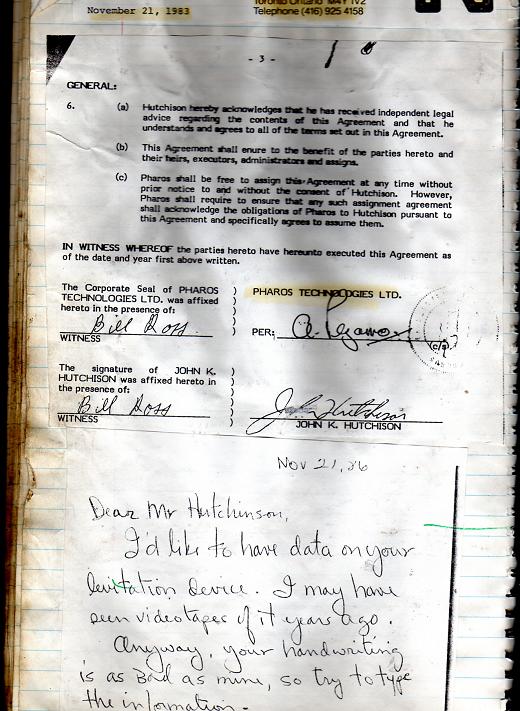 November 21, 1983
Toronto Ontario M4Y 1V2
Telephone (416) 925 4158
- 3 -
GENERAL:
6. (a) Hutchison hereby acknowledges that he has received independent legal
advice regarding the contents of this Agreement and that he
understands and agrees to all of the terms set out in this Agreement.
(b) This Agreement shall enure to the benefit of the parties hereto and
their heirs, executors, administrators and assigns.
(c) Pharos shall be free to assign this Agreement at any time without
prior notice to and without the consent of Hutchison. However,
Pharos shall require to ensure that any such assignment agreement
shall acknowledge the obligations of Pharos to Hutchison pursuant to
this Agreement and specifically agrees to assume them.
IN WITNESS WHEREOF the parties hereto have hereunto executed this Agreement as
of the date and year first above written.
The Corporate Seal of PHAROS ) PHAROS TECHNOLOGIES LTD.
TECHNOLOGIES LTD. was affixed )
hereto in the presence of: )
Bill Ross ) PER:
WITNESS ) (c/s)
The signature of JOHN K. )
HUTCHISON was affixed hereto in )
the presence of: )
Bill Ross ) John Hutchison
WITNESS ) JOHN K. HUTCHISON
Nov 21, 86
Dear Mr Hutchinson,
I'd like to have data on your
levitation device. I may have
seen videotapes of it years ago.
Anyway, your handwriting
is as Bad as mine, so try to type
the information.